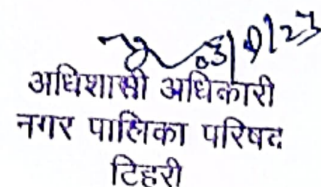 03/9/23
अधिशासी अधिकारी
नगर पालिका परिषद
टिहरी